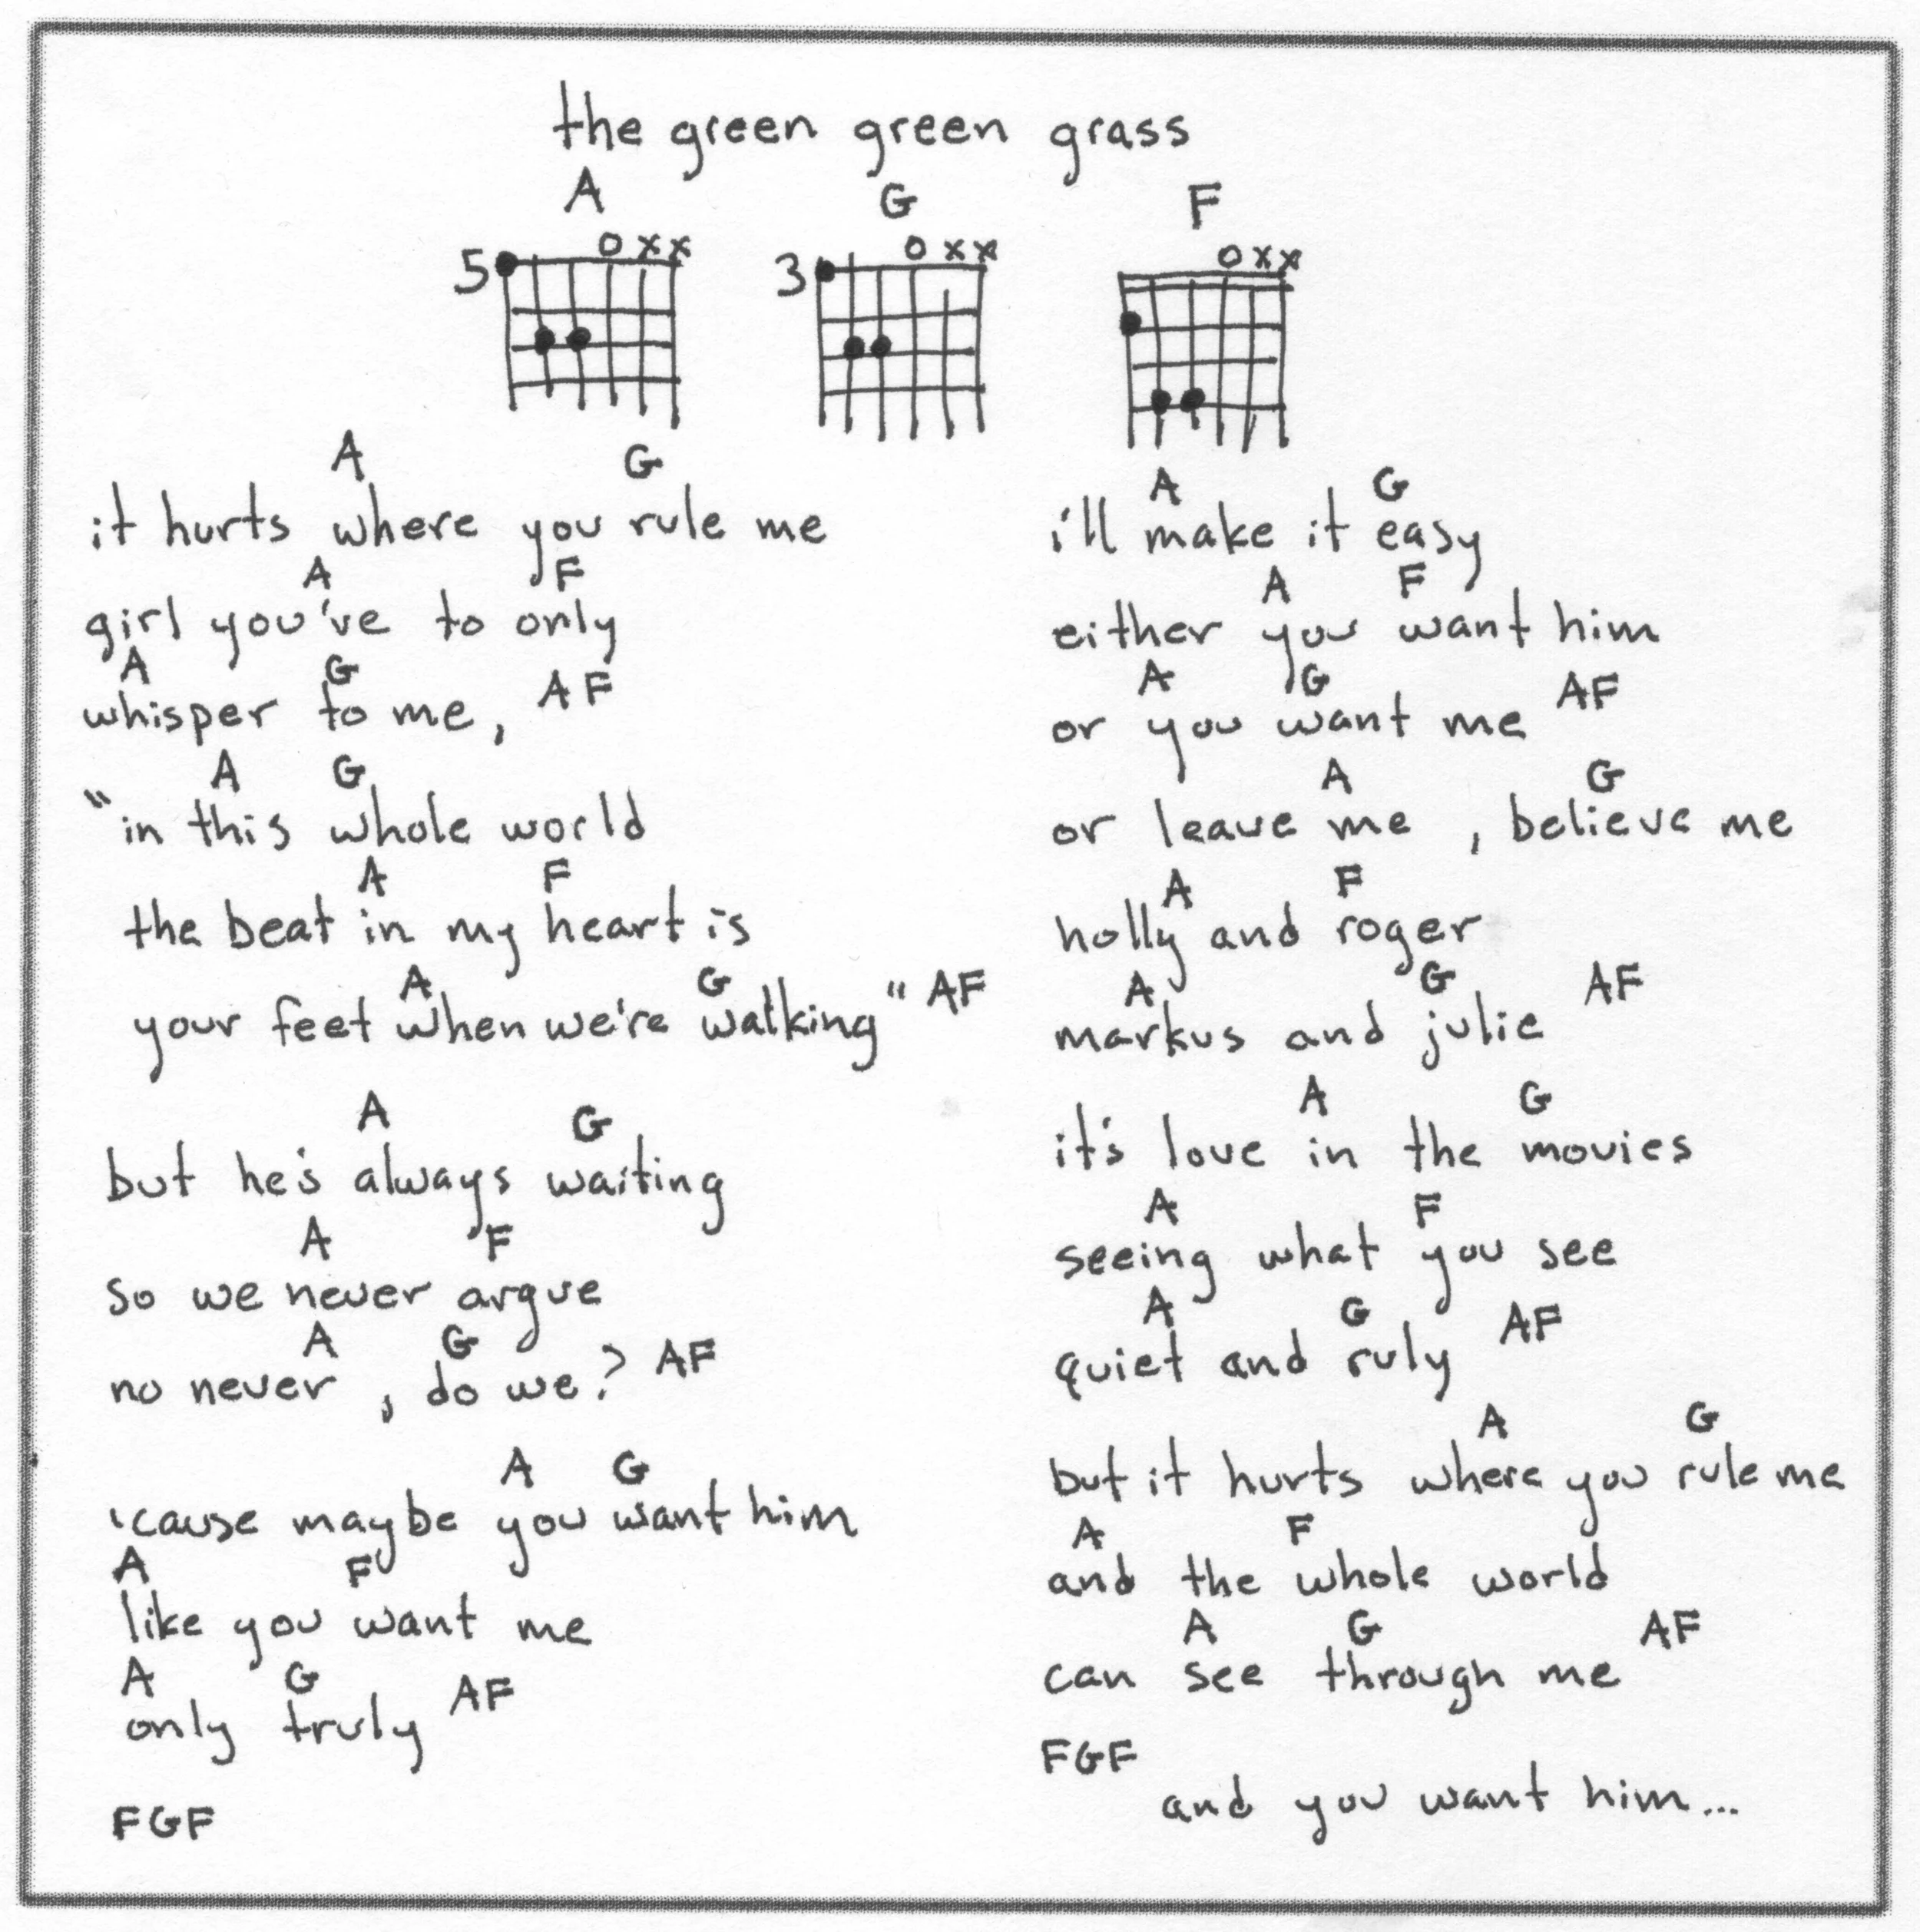 the green green grass
A G F
5 o x x 3 o x x o x x
A G
it hurts where you rule me
A F
girl you've to only
A G
whisper to me, A F
A G
"in this whole world
A F
the beat in my heart is
A G
your feet when we're walking" AF
A G
but he's always waiting
A F
so we never argue
A G
no never, do we? AF
A G
'cause maybe you want him
A F
like you want me
A G
only truly AF
FGF
A G
i'll make it easy
A F
either you want him
A G
or you want me AF
A G
or leave me, believe me
A F
holly and roger
A G
markus and julie AF
A G
it's love in the movies
A F
seeing what you see
A G
quiet and ruly AF
A G
but it hurts where you rule me
A F
and the whole world
A G
can see through me AF
FGF
and you want him...